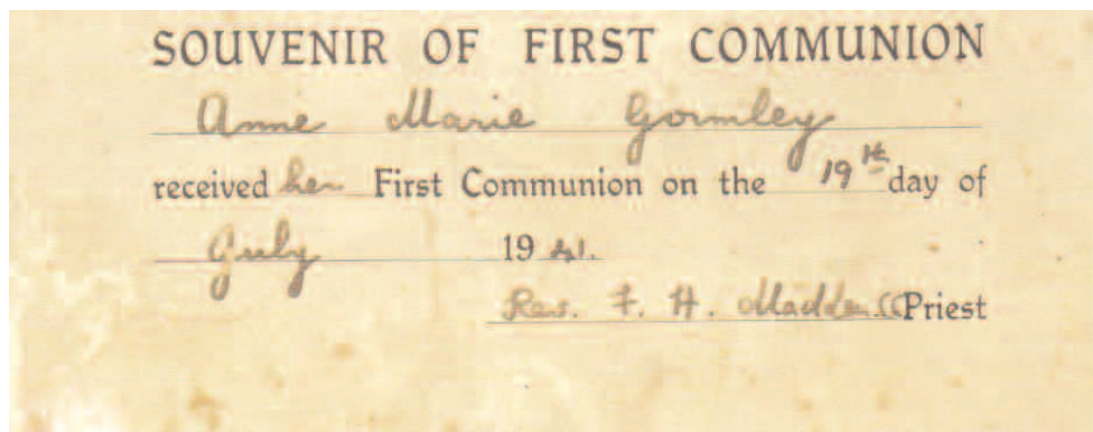 SOUVENIR OF FIRST COMMUNION
Anne Marie Gormley
received her First Communion on the 19th day of
July 1941.
Rev. F. H. Madden CC Priest